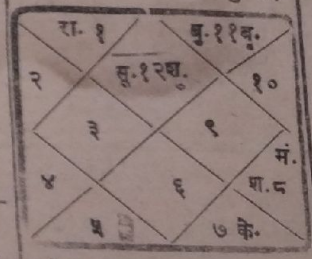 रा. १ बु.११बृ.
सू.१२शु.
२ १०
३ ९
मं.
४ ६ श.८
५ ७ के.